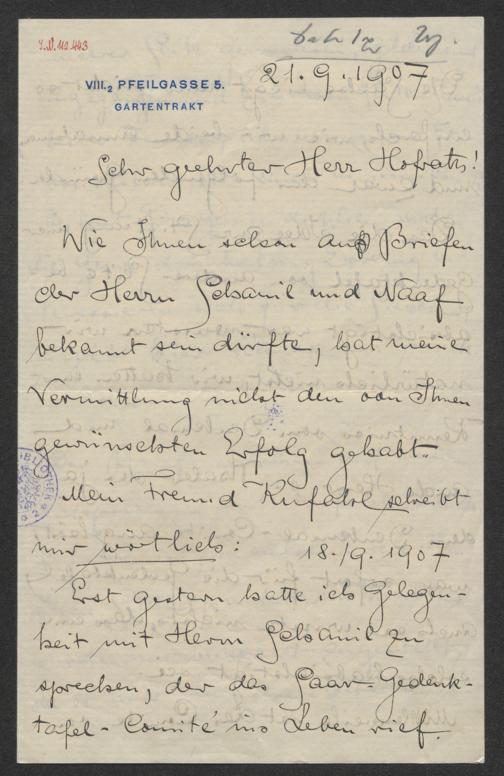 I.N. 112.443
VIII.2 PFEILGASSE 5.
GARTENTRAKT
21.9.1907
Sehr geehrter Herr Hofrath!
Wie Ihnen schon aus Briefen
der Herrn Gebauil und Naaf
bekannt sein dürfte, hat meine
Vermittlung nicht den von Ihnen
gewünschten Erfolg gehabt.
Mein Freund schreibt
mir wörtlich: 18./9. 1907
Erst gestern hatte ich Gelegen-
heit mit Herrn Gebauil zu
sprechen, der das Saar-Gedenk-
tafel-Comité ins Leben rief.